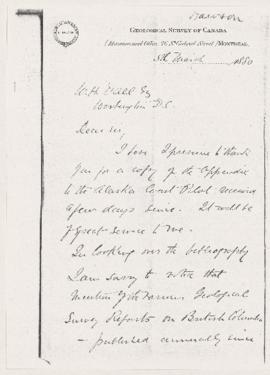 Dawson
GEOLOGICAL SURVEY OF CANADA
(Museum and Office, 76, St. Gabriel Street) MONTREAL,
5th March 1880
W.H. Dall Esq
Washington D.C.
Dear Sir,
I have I presume to thank
you for a copy of the Appendix
to the Alaska Coast Pilot received
a few days since. It will be
of great service to me.
In looking over the bibliography
I am sorry to notice that
mention of the various Geological
Survey Reports on British Columbia
— published annually since